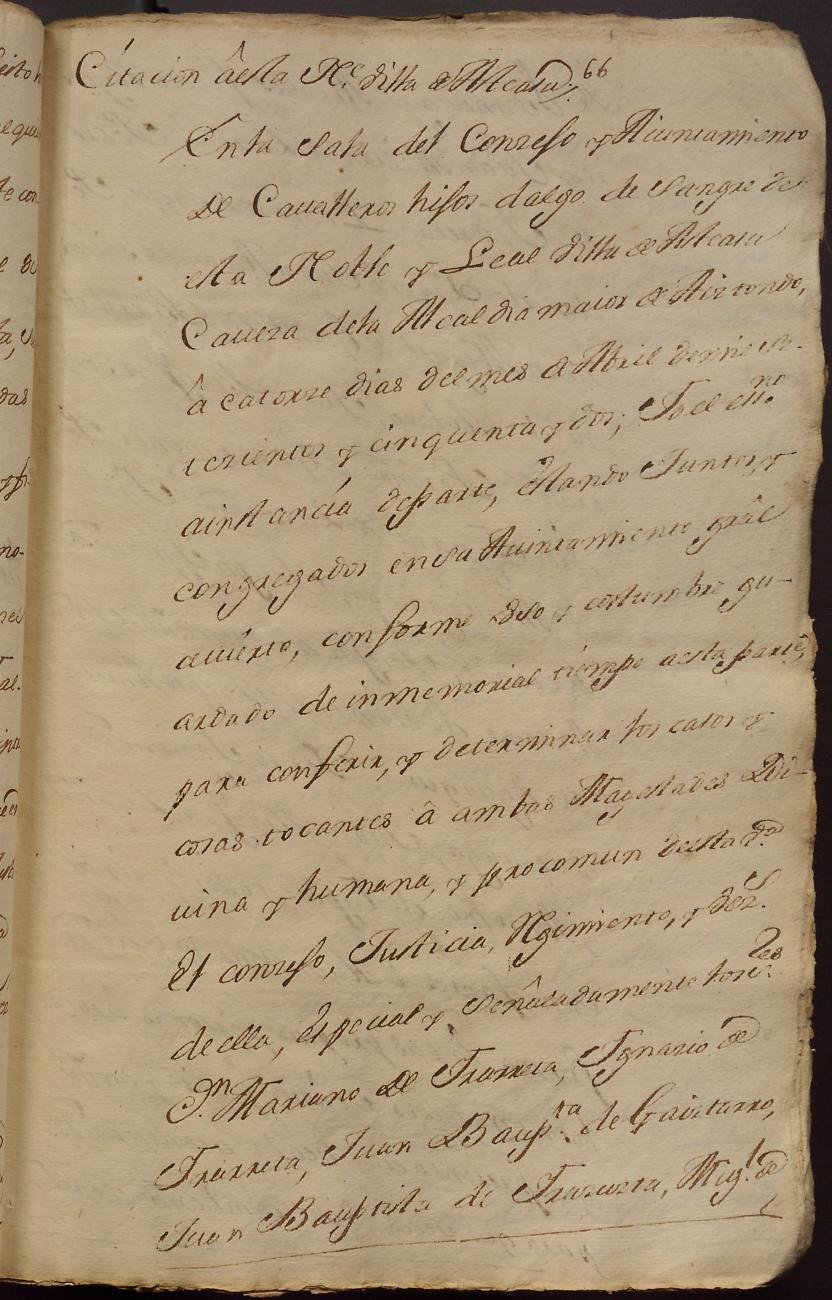 Citacion â esta N.e Villa de Alcasa; 66
En la Sala del Conzejo y Aiuntamiento
de Cavalleros hijos dalgo de Sangre de
esta Noble y Leal Villa de Alcasa
Caveza dela Alcaldia maior de Aiztondo,
â catorze dias del mes de Abril de mil se-
tecientos y cinquenta y dos; Yo el ess.no
a instancia de parte, estando Juntos, y
congregados en su Auintamiento grâl
avierto, conforme uso y costumbre gu-
ardado de inmemorial tiempo a esta parte,
para conferir, y determinar los casos y
cosas tocantes â ambas Magestades Di-
vina y humana, y procomun de esta V.a
El conzejo, Justicia, Regimiento, y Vez.s
de ella, Especial y Señaladamente los
D.n Mariano de Irarreta, Ygnazio de
Irarreta, Juan Baup.ta de Gaiztarro,
Juan Bauptista de Irazusta, Mig.l de